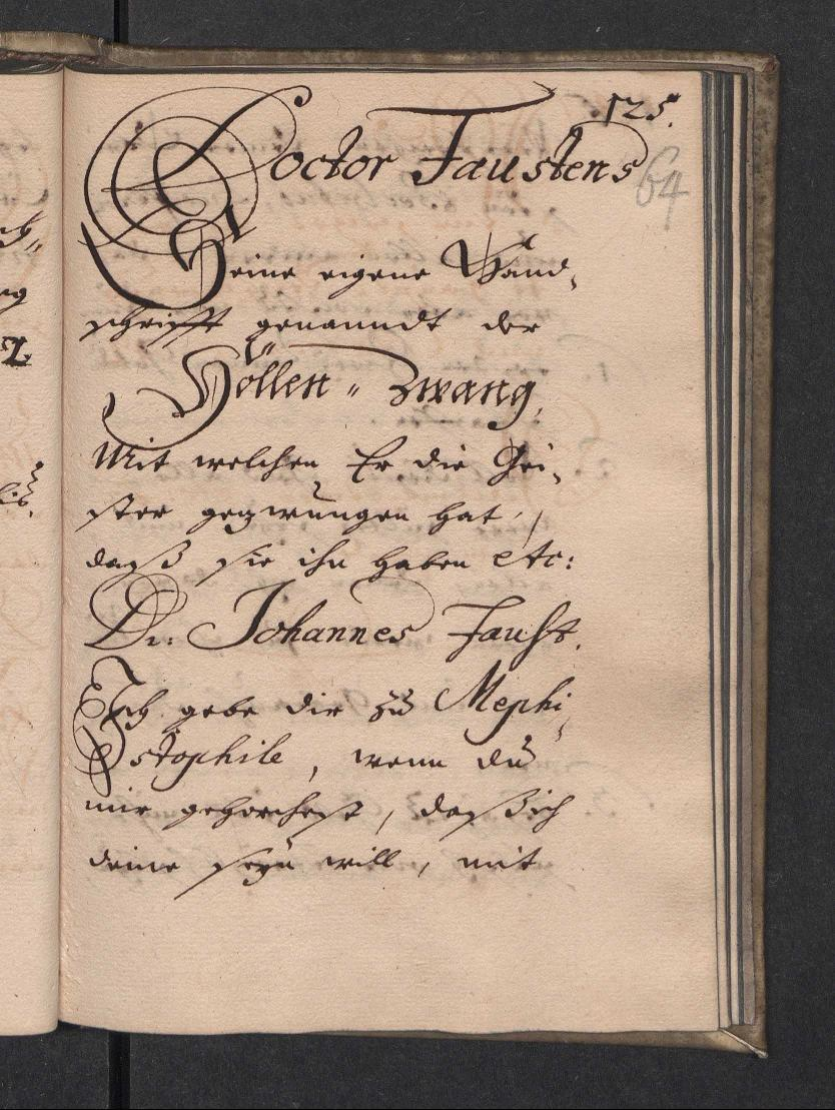 125.
Doctor Faustens
64
Seine eigene Hand,
schrifft genanndt der
Höllen" Zwang,
Mit welchen Er die Gei,
ster gezwungen hat,
daß sie ihn haben etc:
Dr. Johannes Faust.
Ich gebe dir zu Mephi,
stophile, wenn du
mir gehorchest, daß ich
deine seyn will, mit